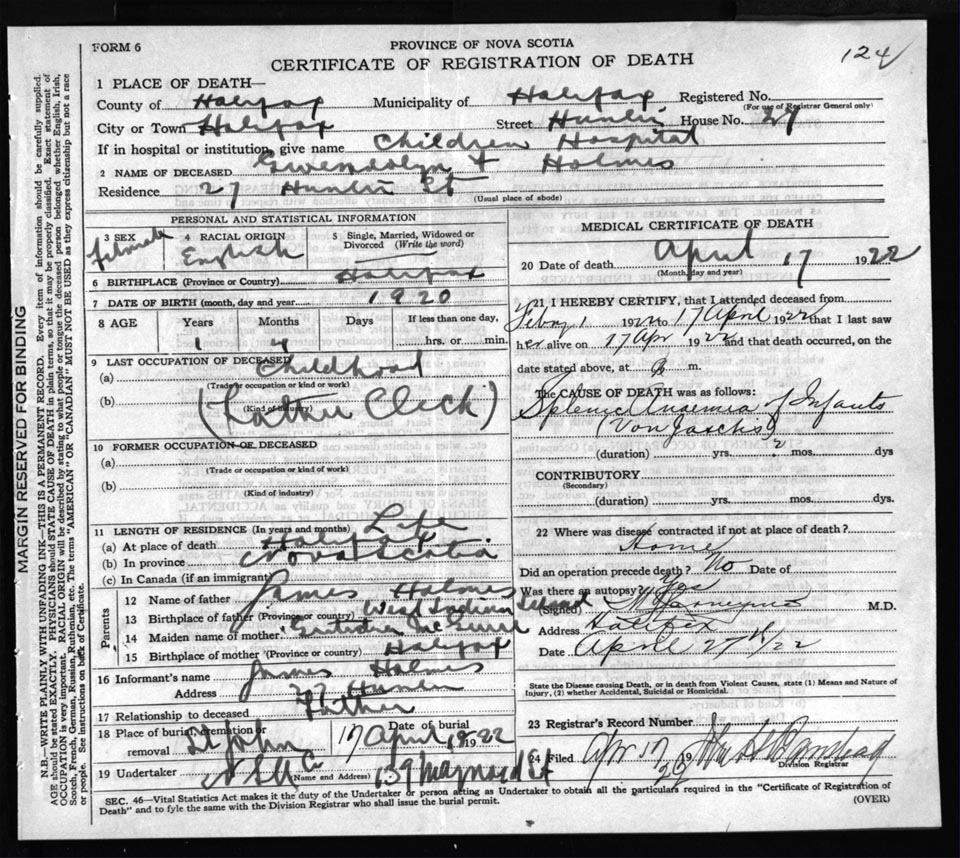 FORM 6
PROVINCE OF NOVA SCOTIA
CERTIFICATE OF REGISTRATION OF DEATH
124
1 PLACE OF DEATH—
County of Halifax Municipality of Halifax Registered No.
(For use of Registrar General only)
City or Town Halifax Street House No. 27
If in hospital or institution, give name Children Hospital
2 NAME OF DECEASED Gwendolyn Holmes
Residence 27 St
(Usual place of abode)
PERSONAL AND STATISTICAL INFORMATION
3 SEX female
4 RACIAL ORIGIN English
5 Single, Married, Widowed or Divorced (Write the word)
6 BIRTHPLACE (Province or Country) Halifax
7 DATE OF BIRTH (month, day and year) 1920
8 AGE Years Months Days If less than one day,
1 hrs. or min.
9 LAST OCCUPATION OF DECEASED
(a) Childhood
(Trade or occupation or kind or work)
(b) (Father Clerk)
(Kind of industry)
10 FORMER OCCUPATION OF DECEASED
(a)
(Trade or occupation or kind of work)
(b)
(Kind of industry)
11 LENGTH OF RESIDENCE (In years and months) Life
(a) At place of death Halifax
(b) In province Nova Scotia
(c) In Canada (if an immigrant)
Parents
12 Name of father James Holmes
13 Birthplace of father (Province or country) West Indies
14 Maiden name of mother
15 Birthplace of mother (Province or country) Halifax
16 Informant's name James Holmes
Address 27
17 Relationship to deceased Father
18 Place of burial, cremation or removal St John
Date of burial 17 April 1922
19 Undertaker
(Name and Address) 139 Maynard St
MEDICAL CERTIFICATE OF DEATH
20 Date of death April 17 1922
(Month, day and year)
21 I HEREBY CERTIFY, that I attended deceased from
Feby 1 1922 to 17 April 1922 that I last saw
her alive on 17 Apr 1922 and that death occurred, on the
date stated above, at m.
The CAUSE OF DEATH was as follows:
Splenic Anaemia of Infants
(Von Jaschs)
(duration) yrs. ? mos. dys
CONTRIBUTORY
(Secondary)
(duration) yrs. mos. dys.
22 Where was disease contracted if not at place of death?
Home
Did an operation precede death? No Date of
Was there an autopsy? Yes
(Signed) M.D.
Address Halifax
Date April 27th/22
State the Disease causing Death, or in death from Violent Causes, state (1) Means and Nature of
Injury, (2) whether Accidental, Suicidal or Homicidal.
23 Registrar's Record Number
24 Filed Apr 17
Division Registrar
SEC. 46—Vital Statistics Act makes it the duty of the Undertaker or person acting as Undertaker to obtain all the particulars required in the "Certificate of Registration of
Death" and to fyle the same with the Division Registrar who shall issue the burial permit.
(OVER)
MARGIN RESERVED FOR BINDING
N.B.—WRITE PLAINLY WITH UNFADING INK—THIS IS A PERMANENT RECORD. Every item of information should be carefully supplied.
AGE should be stated EXACTLY. PHYSICIANS should STATE CAUSE OF DEATH in plain terms, so that it may be properly classified. Exact statement of
OCCUPATION is very important. RACIAL ORIGIN will be described by stating to what people or tongue the deceased person belonged whether English, Irish,
Scotch, French, German, Russian, Ruthenian, etc. The terms "AMERICAN" OR "CANADIAN" MUST NOT BE USED as they express citizenship but not a race
or people. See instructions on back of Certificate.